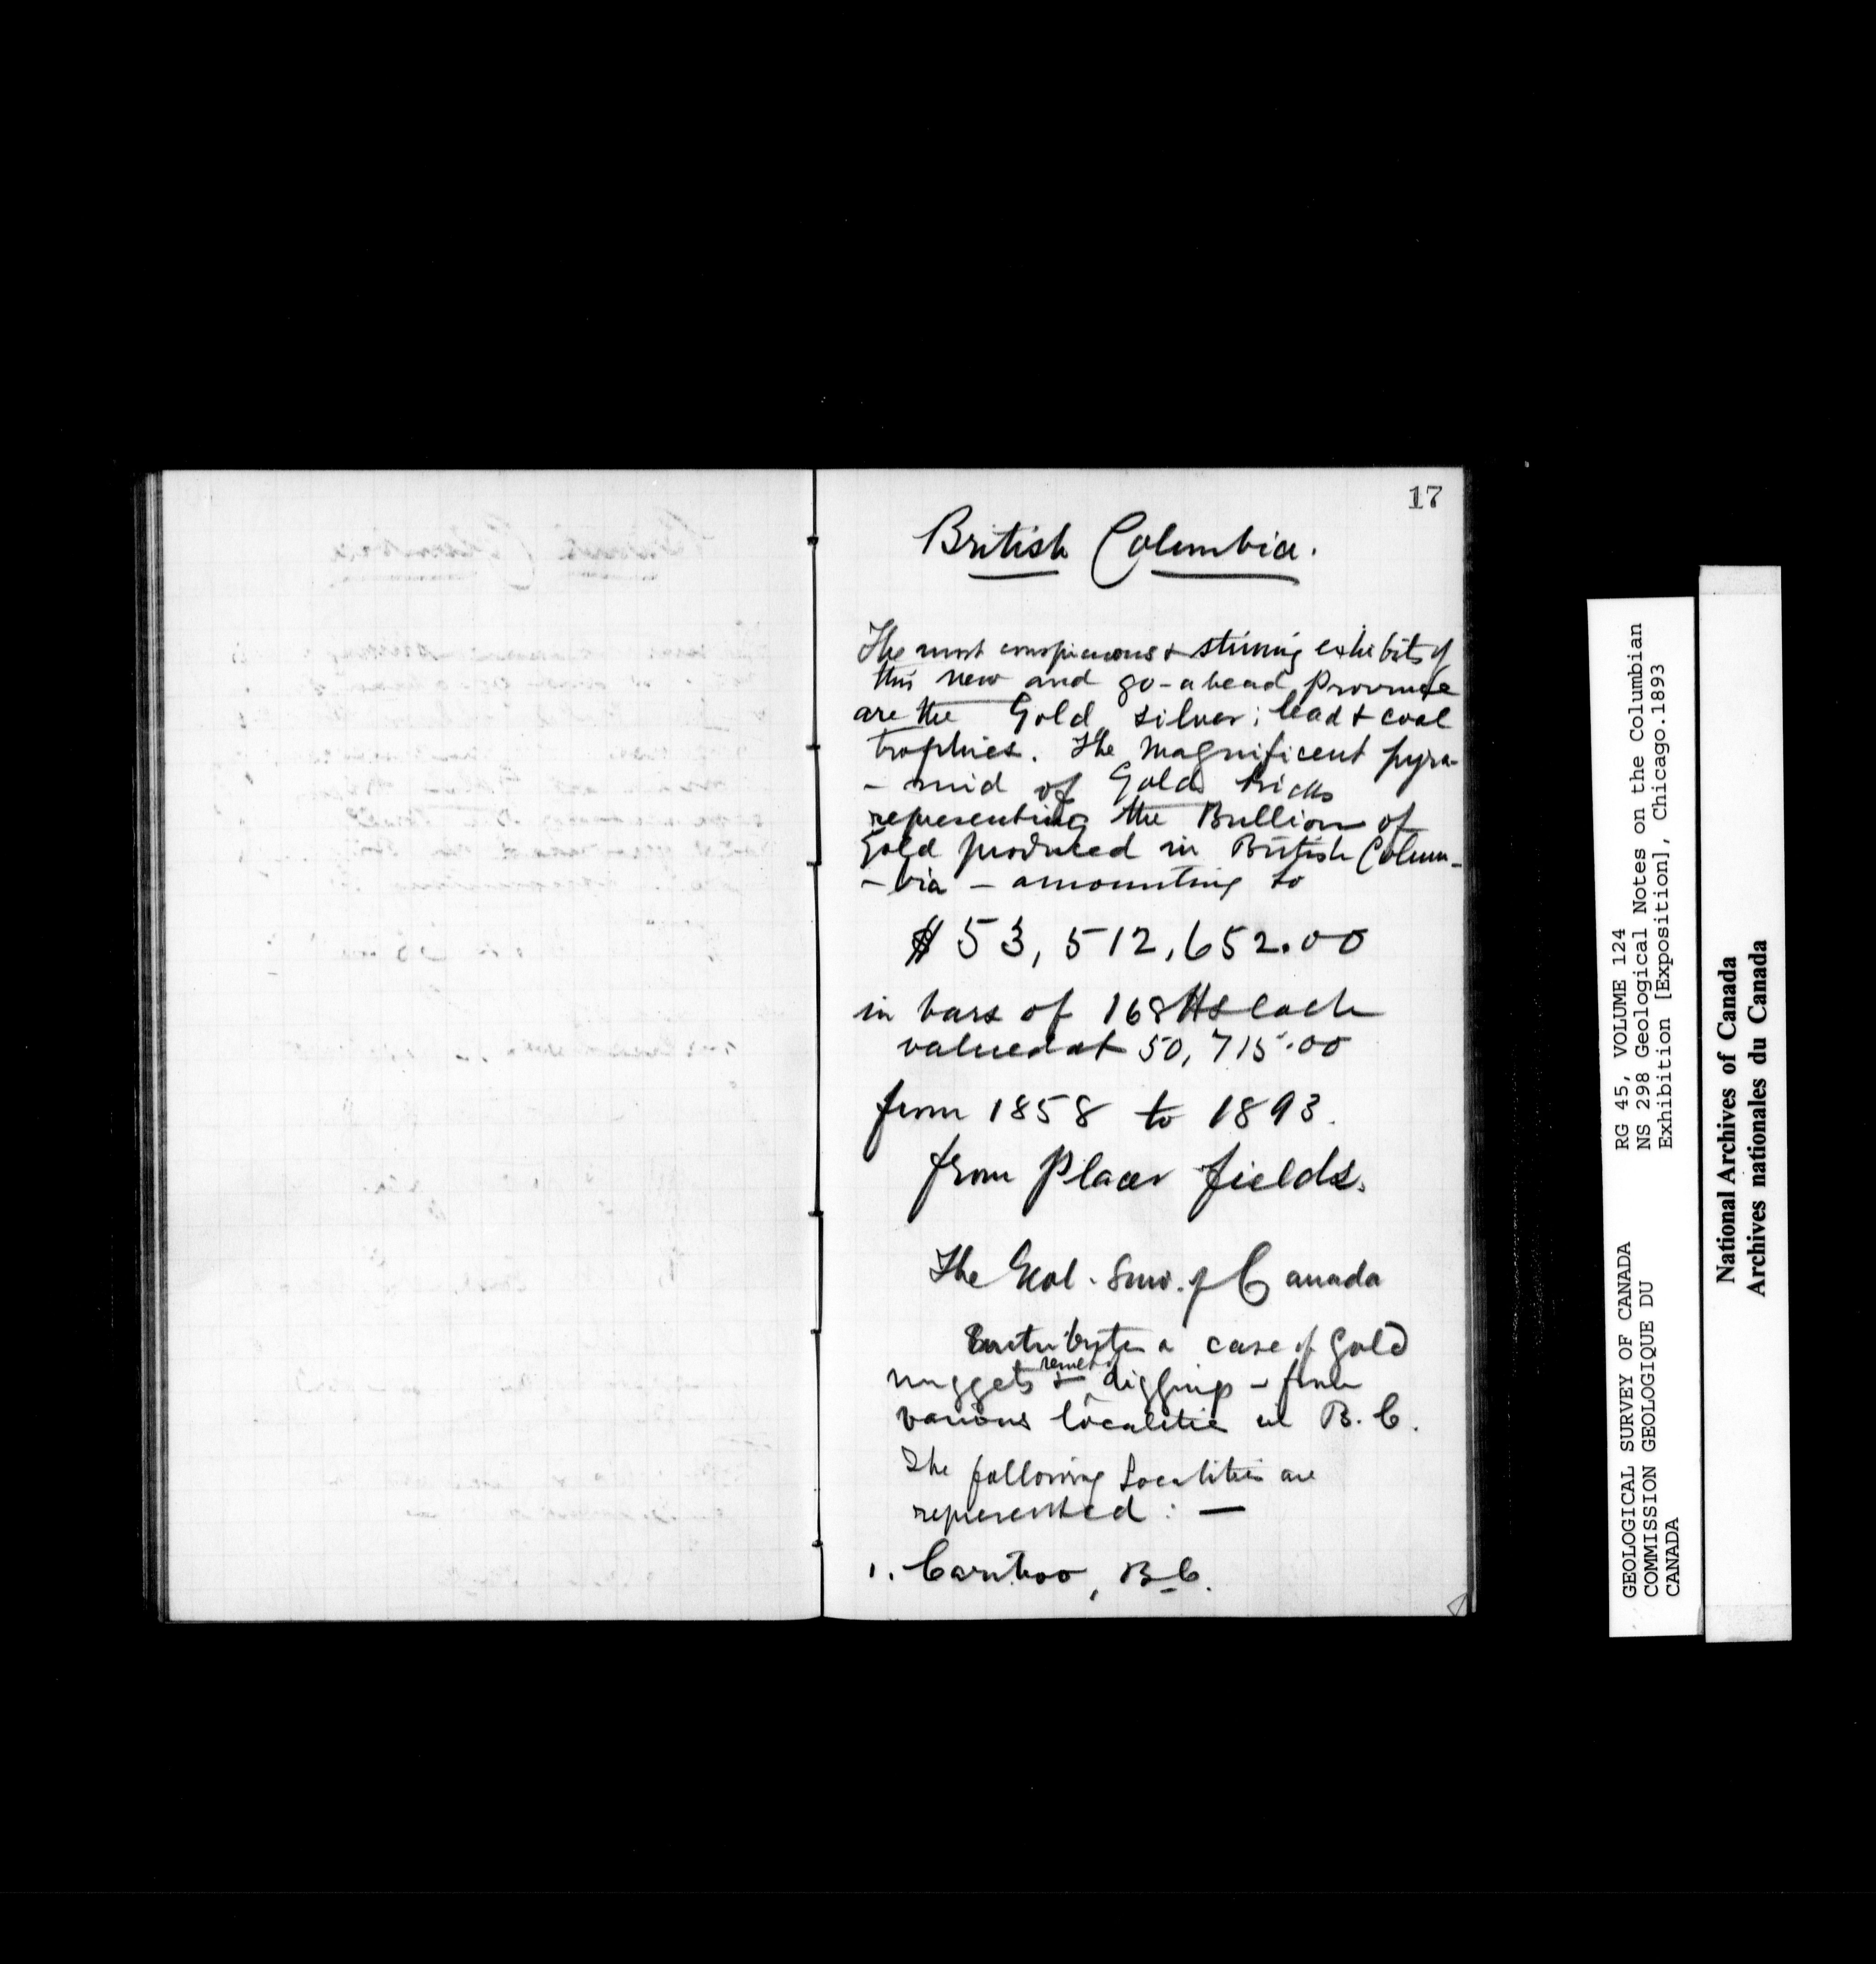 17
British Columbia.
The most conspicuous & stirring exhibits of
this new and go-ahead Province
are the Gold, silver; lead & coal
trophies. The magnificent pyra-
- mid of Gold bricks
representing the Bullion of
Gold produced in British Colum-
- bia - amounting to
$ 53,512,652.00
in bars of 168 lbs each
valued at 50,715.00
from 1858 to 1893.
from Placer fields.
The Geol. Surv. of Canada
Contributes a case of Gold
nuggets & diggings - from
various localitie in B.C.
The following Localities are
represented : —
1. Cariboo, B.C.
GEOLOGICAL SURVEY OF CANADA RG 45, VOLUME 124
COMMISSION GEOLOGIQUE DU NS 298 Geological Notes on the Columbian
CANADA Exhibition [Exposition], Chicago.1893
National Archives of Canada
Archives nationales du Canada